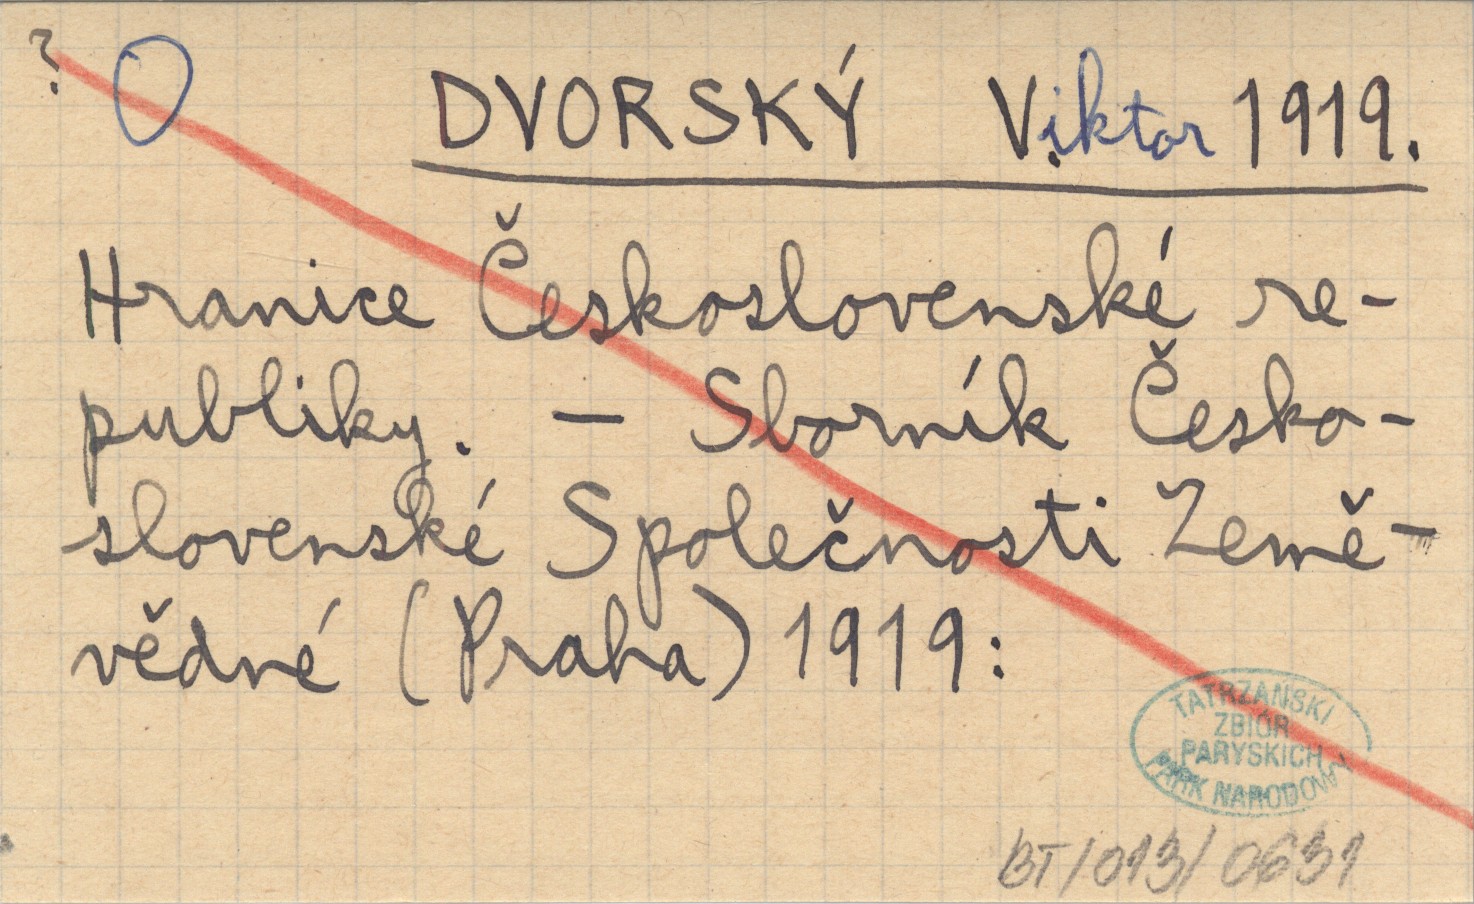 ? O DVORSKÝ Viktor 1919.
Hranice Československé re-
publiky. — Sborník Česko-
slovenské Společnosti Země-
vědné (Praha) 1919:
TATRZAŃSKI
ZBIÓR
PARYSKICH
PARK NARODOWY
BT/013/0631